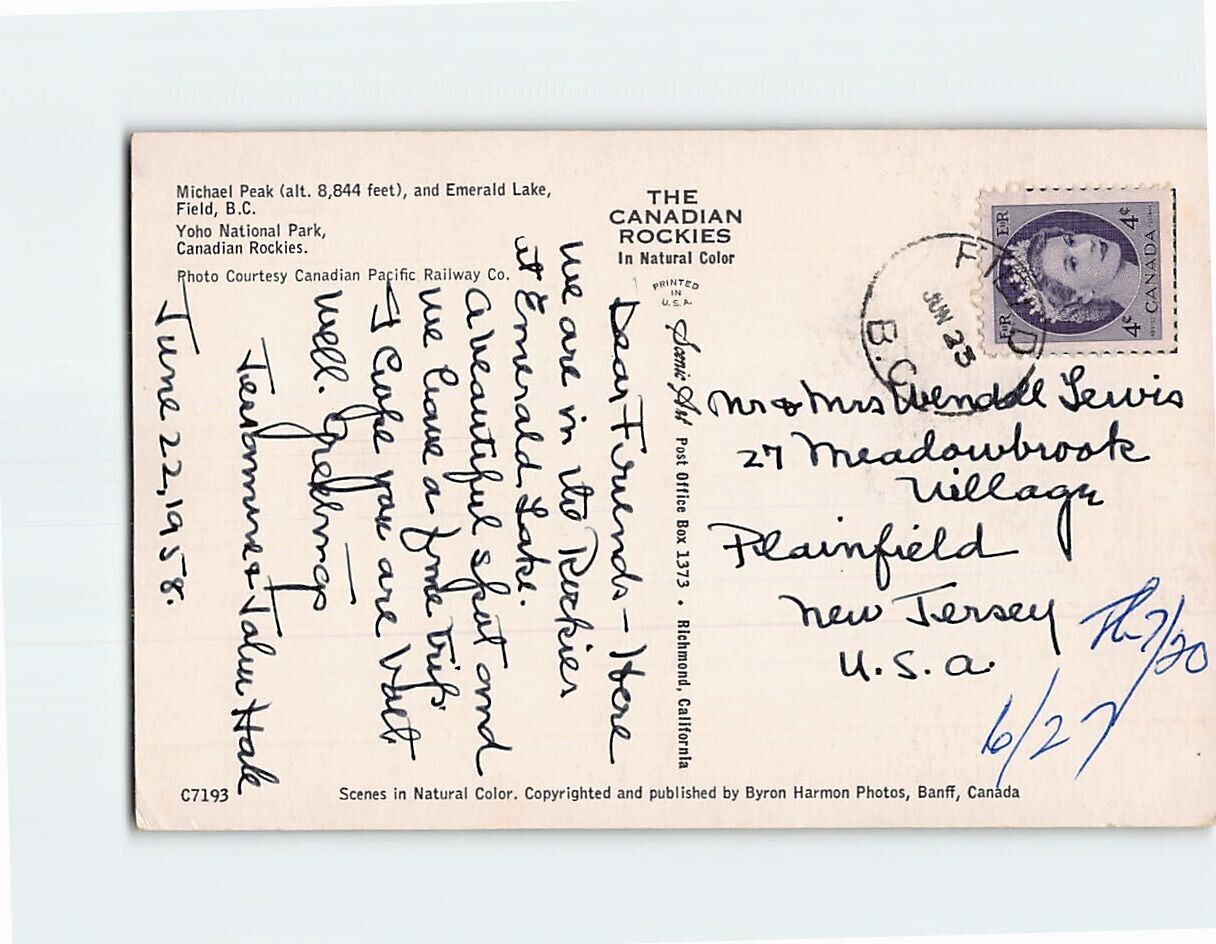 Michael Peak (alt. 8,844 feet), and Emerald Lake,
Field, B.C.
Yoho National Park,
Canadian Rockies.
Photo Courtesy Canadian Pacific Railway Co.
THE
CANADIAN
ROCKIES
In Natural Color
PRINTED
IN
U.S.A.
Post Office Box 1373 • Richmond, California
Dear Friends - Here
we are in the Rockies
at Emerald Lake.
A beautiful spot and
we have a fine trip.
I hope you are both
well. Greetings
& John Hale
June 22, 1958.
FIELD
JUN 23
B.C.
EIIR
EIIR
4¢
4¢
CANADA
Mr & Mrs Wendell Lewis
27 Meadowbrook
Village
Plainfield
New Jersey
U.S.A.
7/20
6/27
C7193
Scenes in Natural Color. Copyrighted and published by Byron Harmon Photos, Banff, Canada